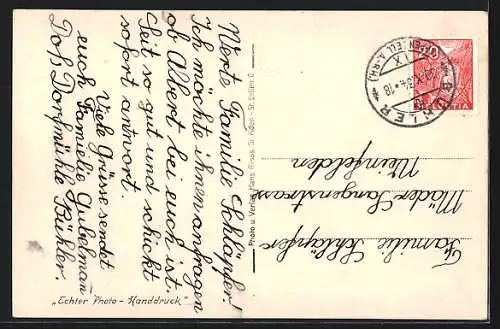 Werte Familie Schläpfer!
Ich möchte ihnen anfragen
ob Albert bei euch ist.
Seit so gut und schickt
sofort antwort.
Viele Grüsse sendet
euch Familie
Dorfmühle Bühler.
"Echter Photo - Handdruck"
Photo u. Verlag Hans Gross, St. Fiden - St. Gallen O
HELVETIA
BÜHLER
(APPENZELL A.-RH.)
Familie Schläpfer
Mäder Langenstrass
Weinfelden